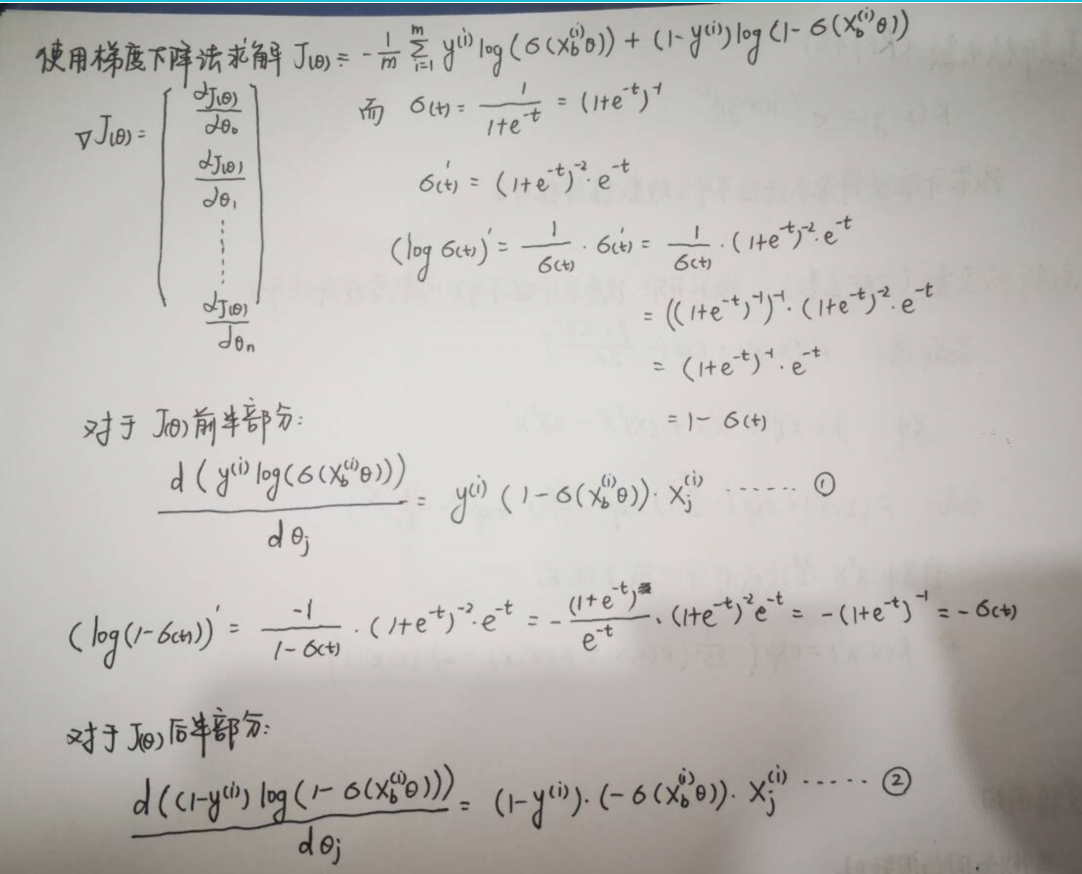 使用梯度下降法求解 J(θ) = -1/m Σ_{i=1}^{m} y^(i) log(σ(X_b^(i)θ)) + (1-y^(i)) log(1-σ(X_b^(i)θ))
∇J(θ) = [dJ(θ)/dθ₀, dJ(θ)/dθ₁, ⋮, dJ(θ)/dθₙ]
而 σ(t) = 1/(1+e^-t) = (1+e^-t)^-1
σ(t)' = (1+e^-t)^-2 · e^-t
(log σ(t))' = 1/σ(t) · σ(t)' = 1/σ(t) · (1+e^-t)^-2 · e^-t
= ((1+e^-t)^-1)^-1 · (1+e^-t)^-2 · e^-t
= (1+e^-t)^-1 · e^-t
= 1 - σ(t)
对于 J(θ) 前半部分:
d(y^(i) log(σ(X_b^(i)θ)))/dθ_j = y^(i) (1-σ(X_b^(i)θ)) · X_j^(i) ...... ①
(log(1-σ(t)))' = -1/(1-σ(t)) · (1+e^-t)^-2 · e^-t = - (1+e^-t)/e^-t · (1+e^-t)^-2 e^-t = -(1+e^-t)^-1 = -σ(t)
对于 J(θ) 后半部分:
d((1-y^(i)) log(1-σ(X_b^(i)θ)))/dθ_j = (1-y^(i)) · (-σ(X_b^(i)θ)) · X_j^(i) ...... ②